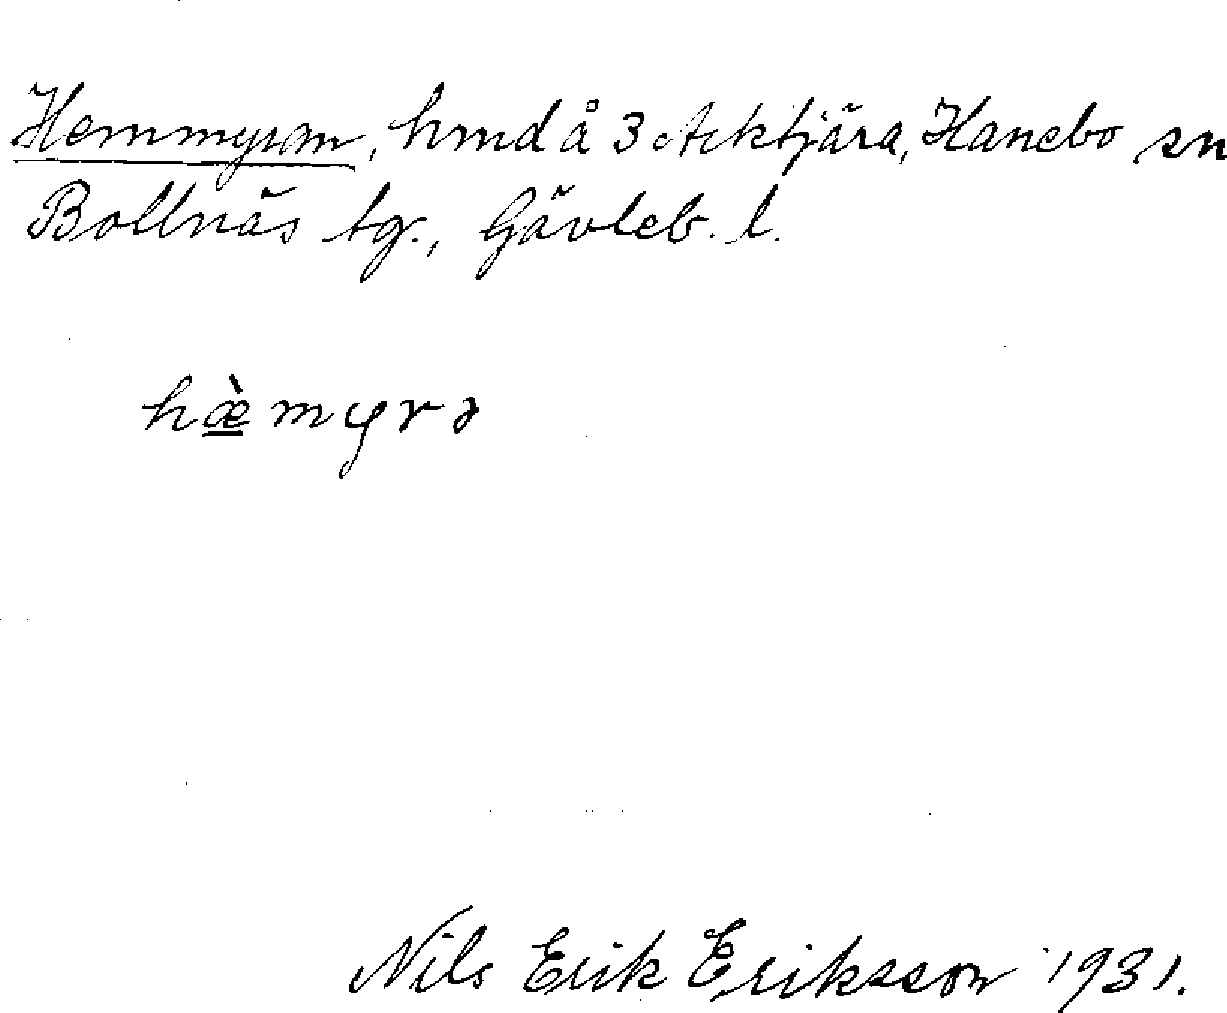 Hemmyran, hmd å 3 Arktjära, Hanebo sn
Bollnäs tg., Gävleb. l.
hæ̀myrə
Nils Erik Eriksson 1931.